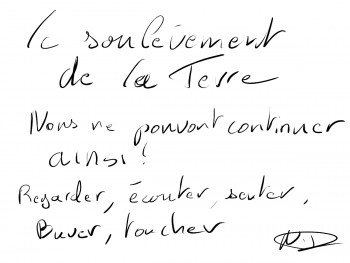 Le soulèvement
de la Terre
Nous ne pouvont continuer
ainsi !
Regarder, écouter, sauter,
Buver, toucher
N.D